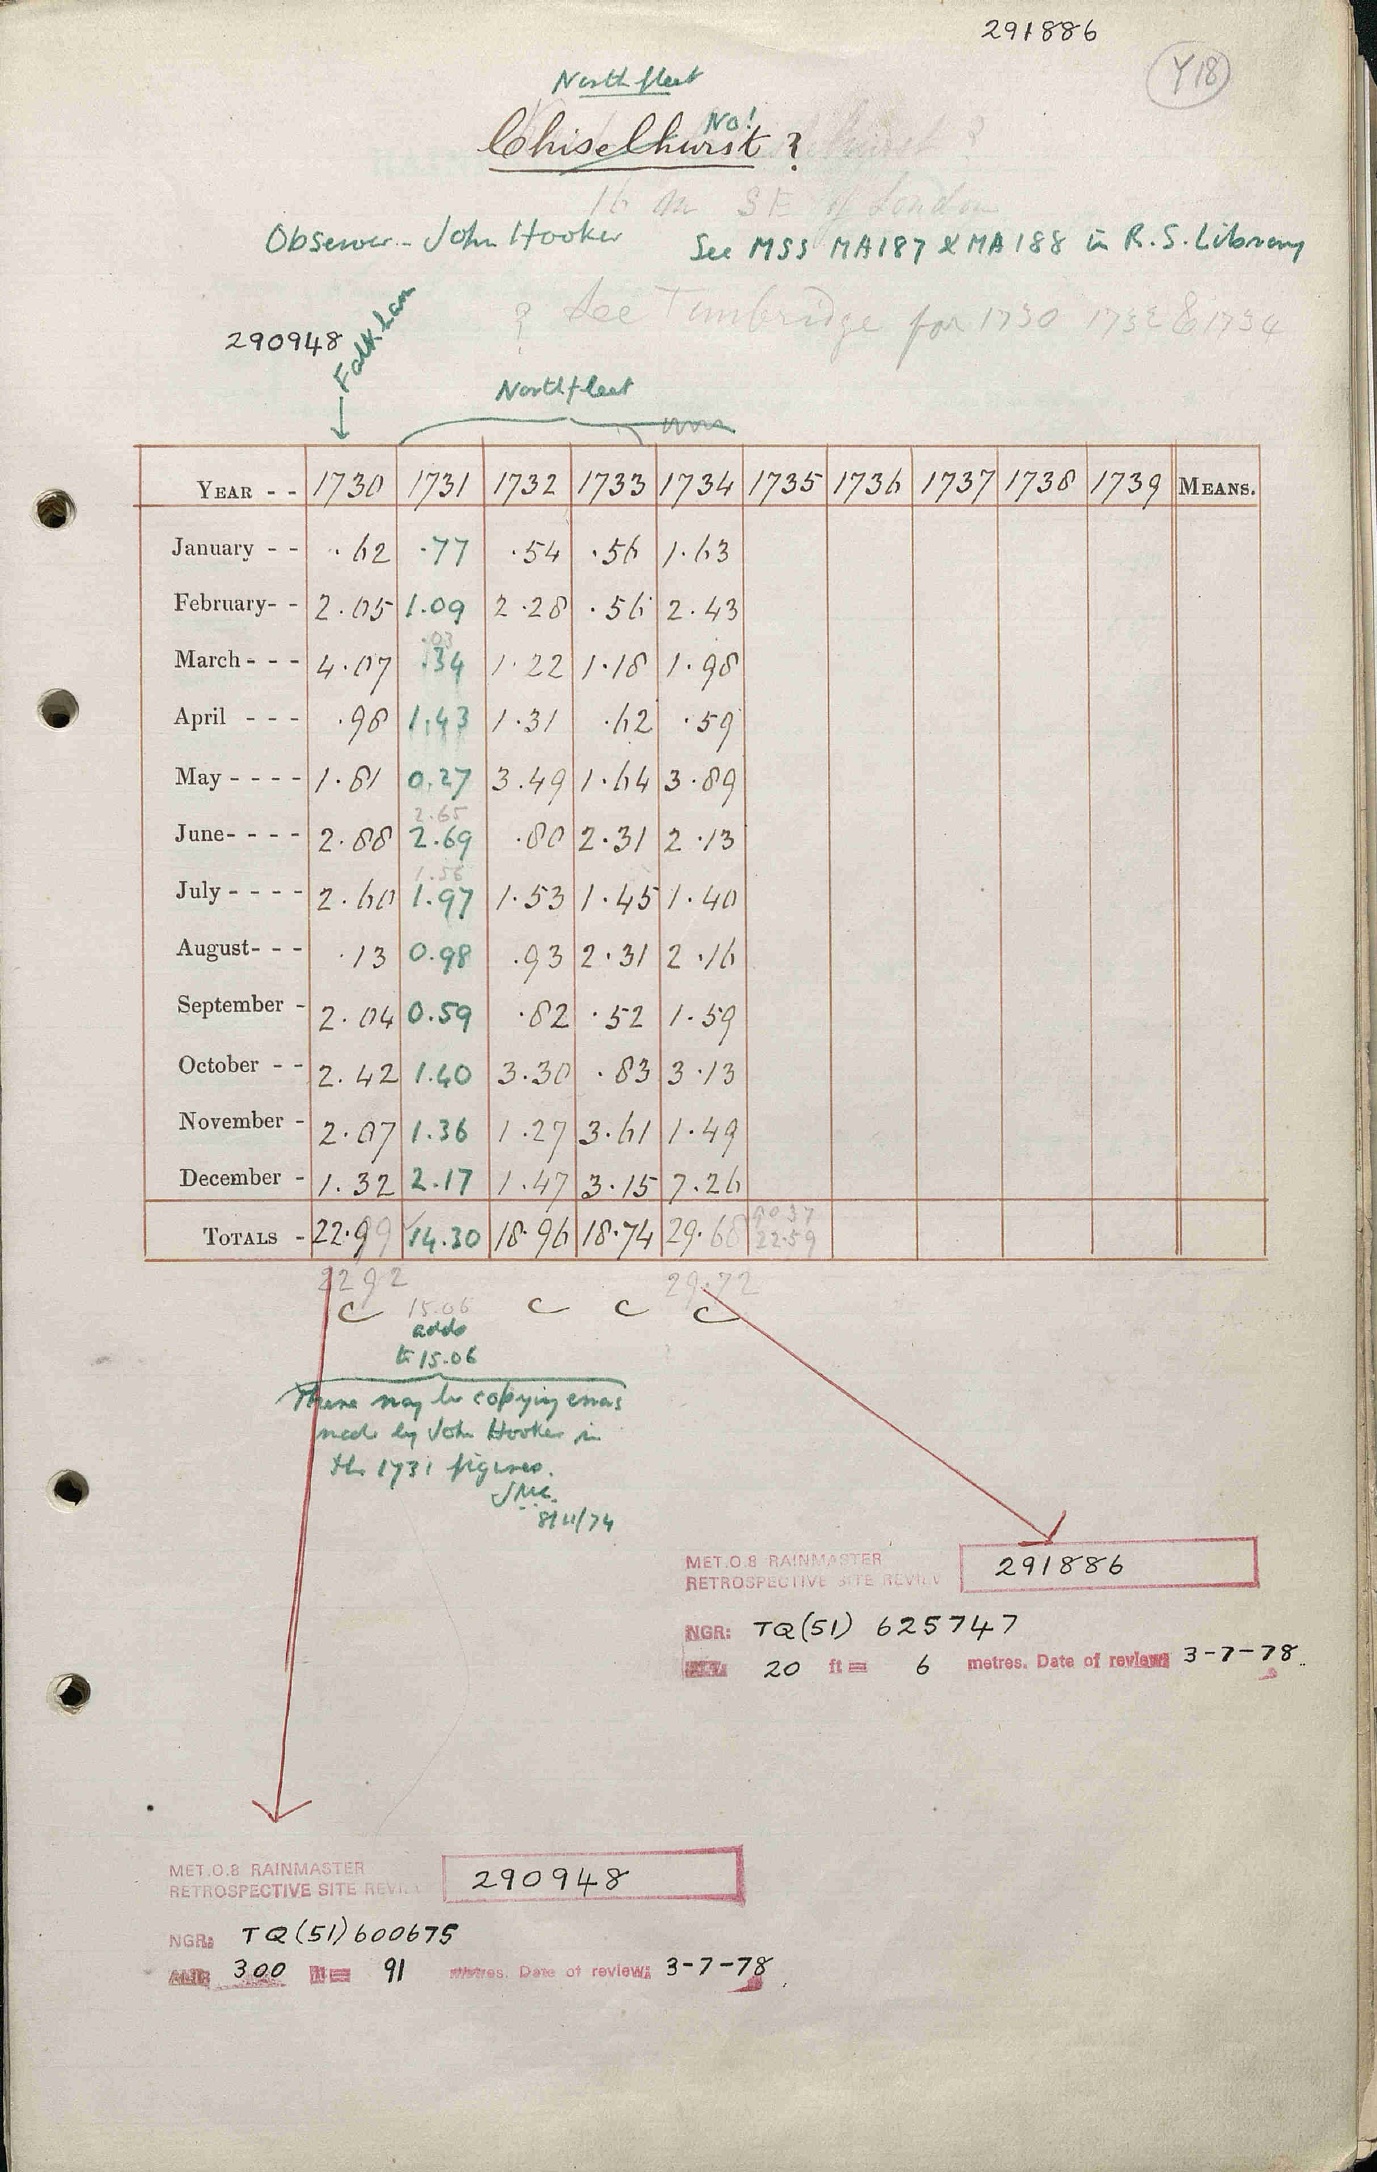 291886
Y18
Northfleet
No!
Chiselhurst ?
16 m SE of London
Observer - John Hooker See MSS MA187 & MA188 in R.S. Library
? See Tunbridge for 1730 1732 & 1734
290948 Fawkham
Northfleet
YEAR - - 1730 1731 1732 1733 1734 1735 1736 1737 1738 1739 MEANS.
January - - .62 .77 .54 .56 1.63
February- - 2.05 1.09 2.28 .56 2.43
.03
March - - - 4.07 .34 1.22 1.18 1.98
April - - - .98 1.43 1.31 .62 .59
May - - - - 1.81 0.27 3.49 1.64 3.89
2.65
June- - - - 2.88 2.69 .80 2.31 2.13
1.56
July - - - - 2.60 1.97 1.53 1.45 1.40
August- - - .13 0.98 .93 2.31 2.16
September - 2.04 0.59 .82 .52 1.59
October - - 2.42 1.40 3.30 .83 3.13
November - 2.07 1.36 1.27 3.61 1.49
December - 1.32 2.17 1.47 3.15 7.26
TOTALS - 22.99 14.30 18.96 18.74 29.68 22.59
22 92 29.72
c 15.06 c c c
adds
to 15.06
There may be copying errors
made by John Hooker in
the 1731 figures.
8/11/74
MET.O.8 RAINMASTER
RETROSPECTIVE SITE REVIEW 291886
NGR: TQ(51) 625747
20 ft = 6 metres. Date of review: 3-7-78
MET.O.8 RAINMASTER
RETROSPECTIVE SITE REVIEW 290948
NGR: TQ(51)600675
300 ft = 91 metres. Date of review: 3-7-78